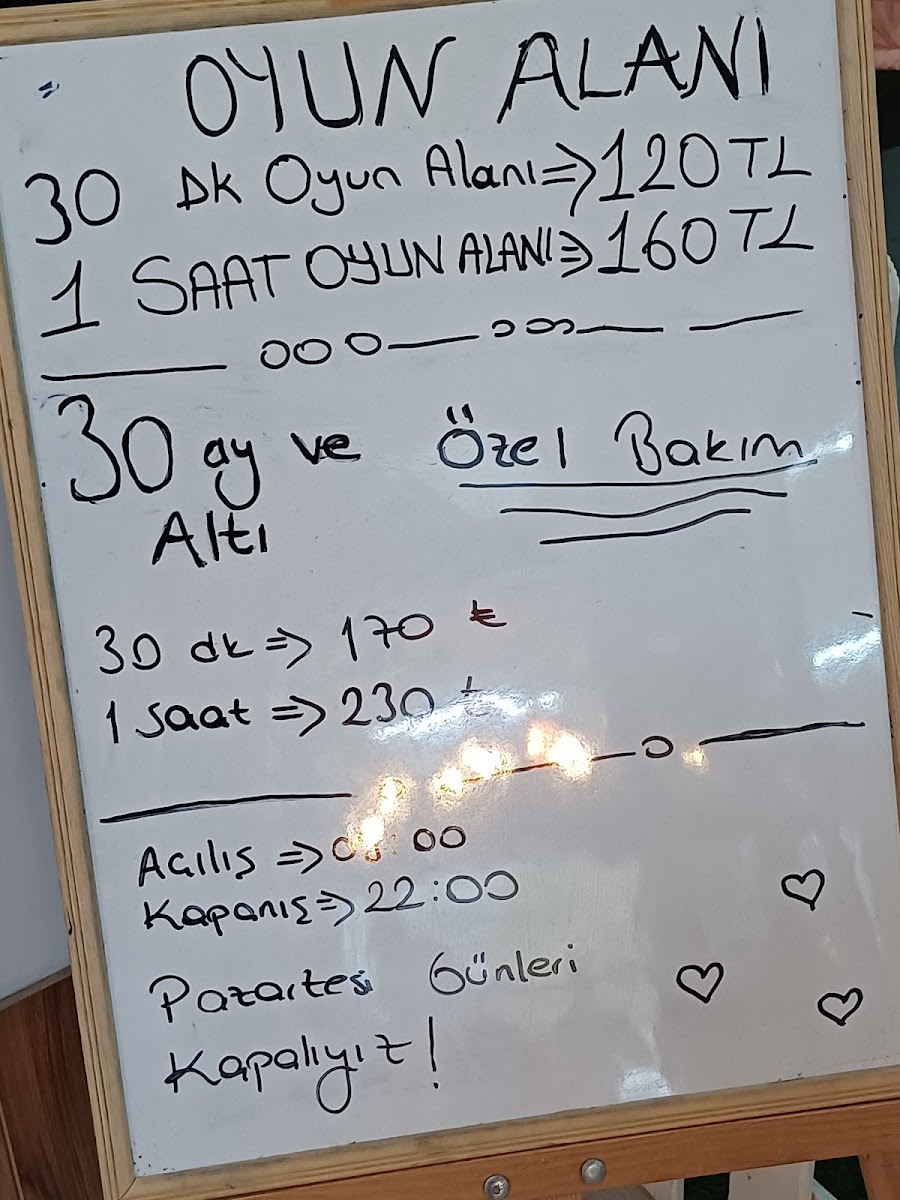 OYUN ALANI
30 Dk Oyun Alanı⇒120 TL
1 SAAT OYUN ALANI⇒160 TL
30 ay ve Altı
Özel Bakım
30 dk ⇒ 170 ₺
1 saat ⇒ 230 ₺
Açılış ⇒ :00
Kapanış⇒ 22:00
Pazartesi Günleri
Kapalıyız!